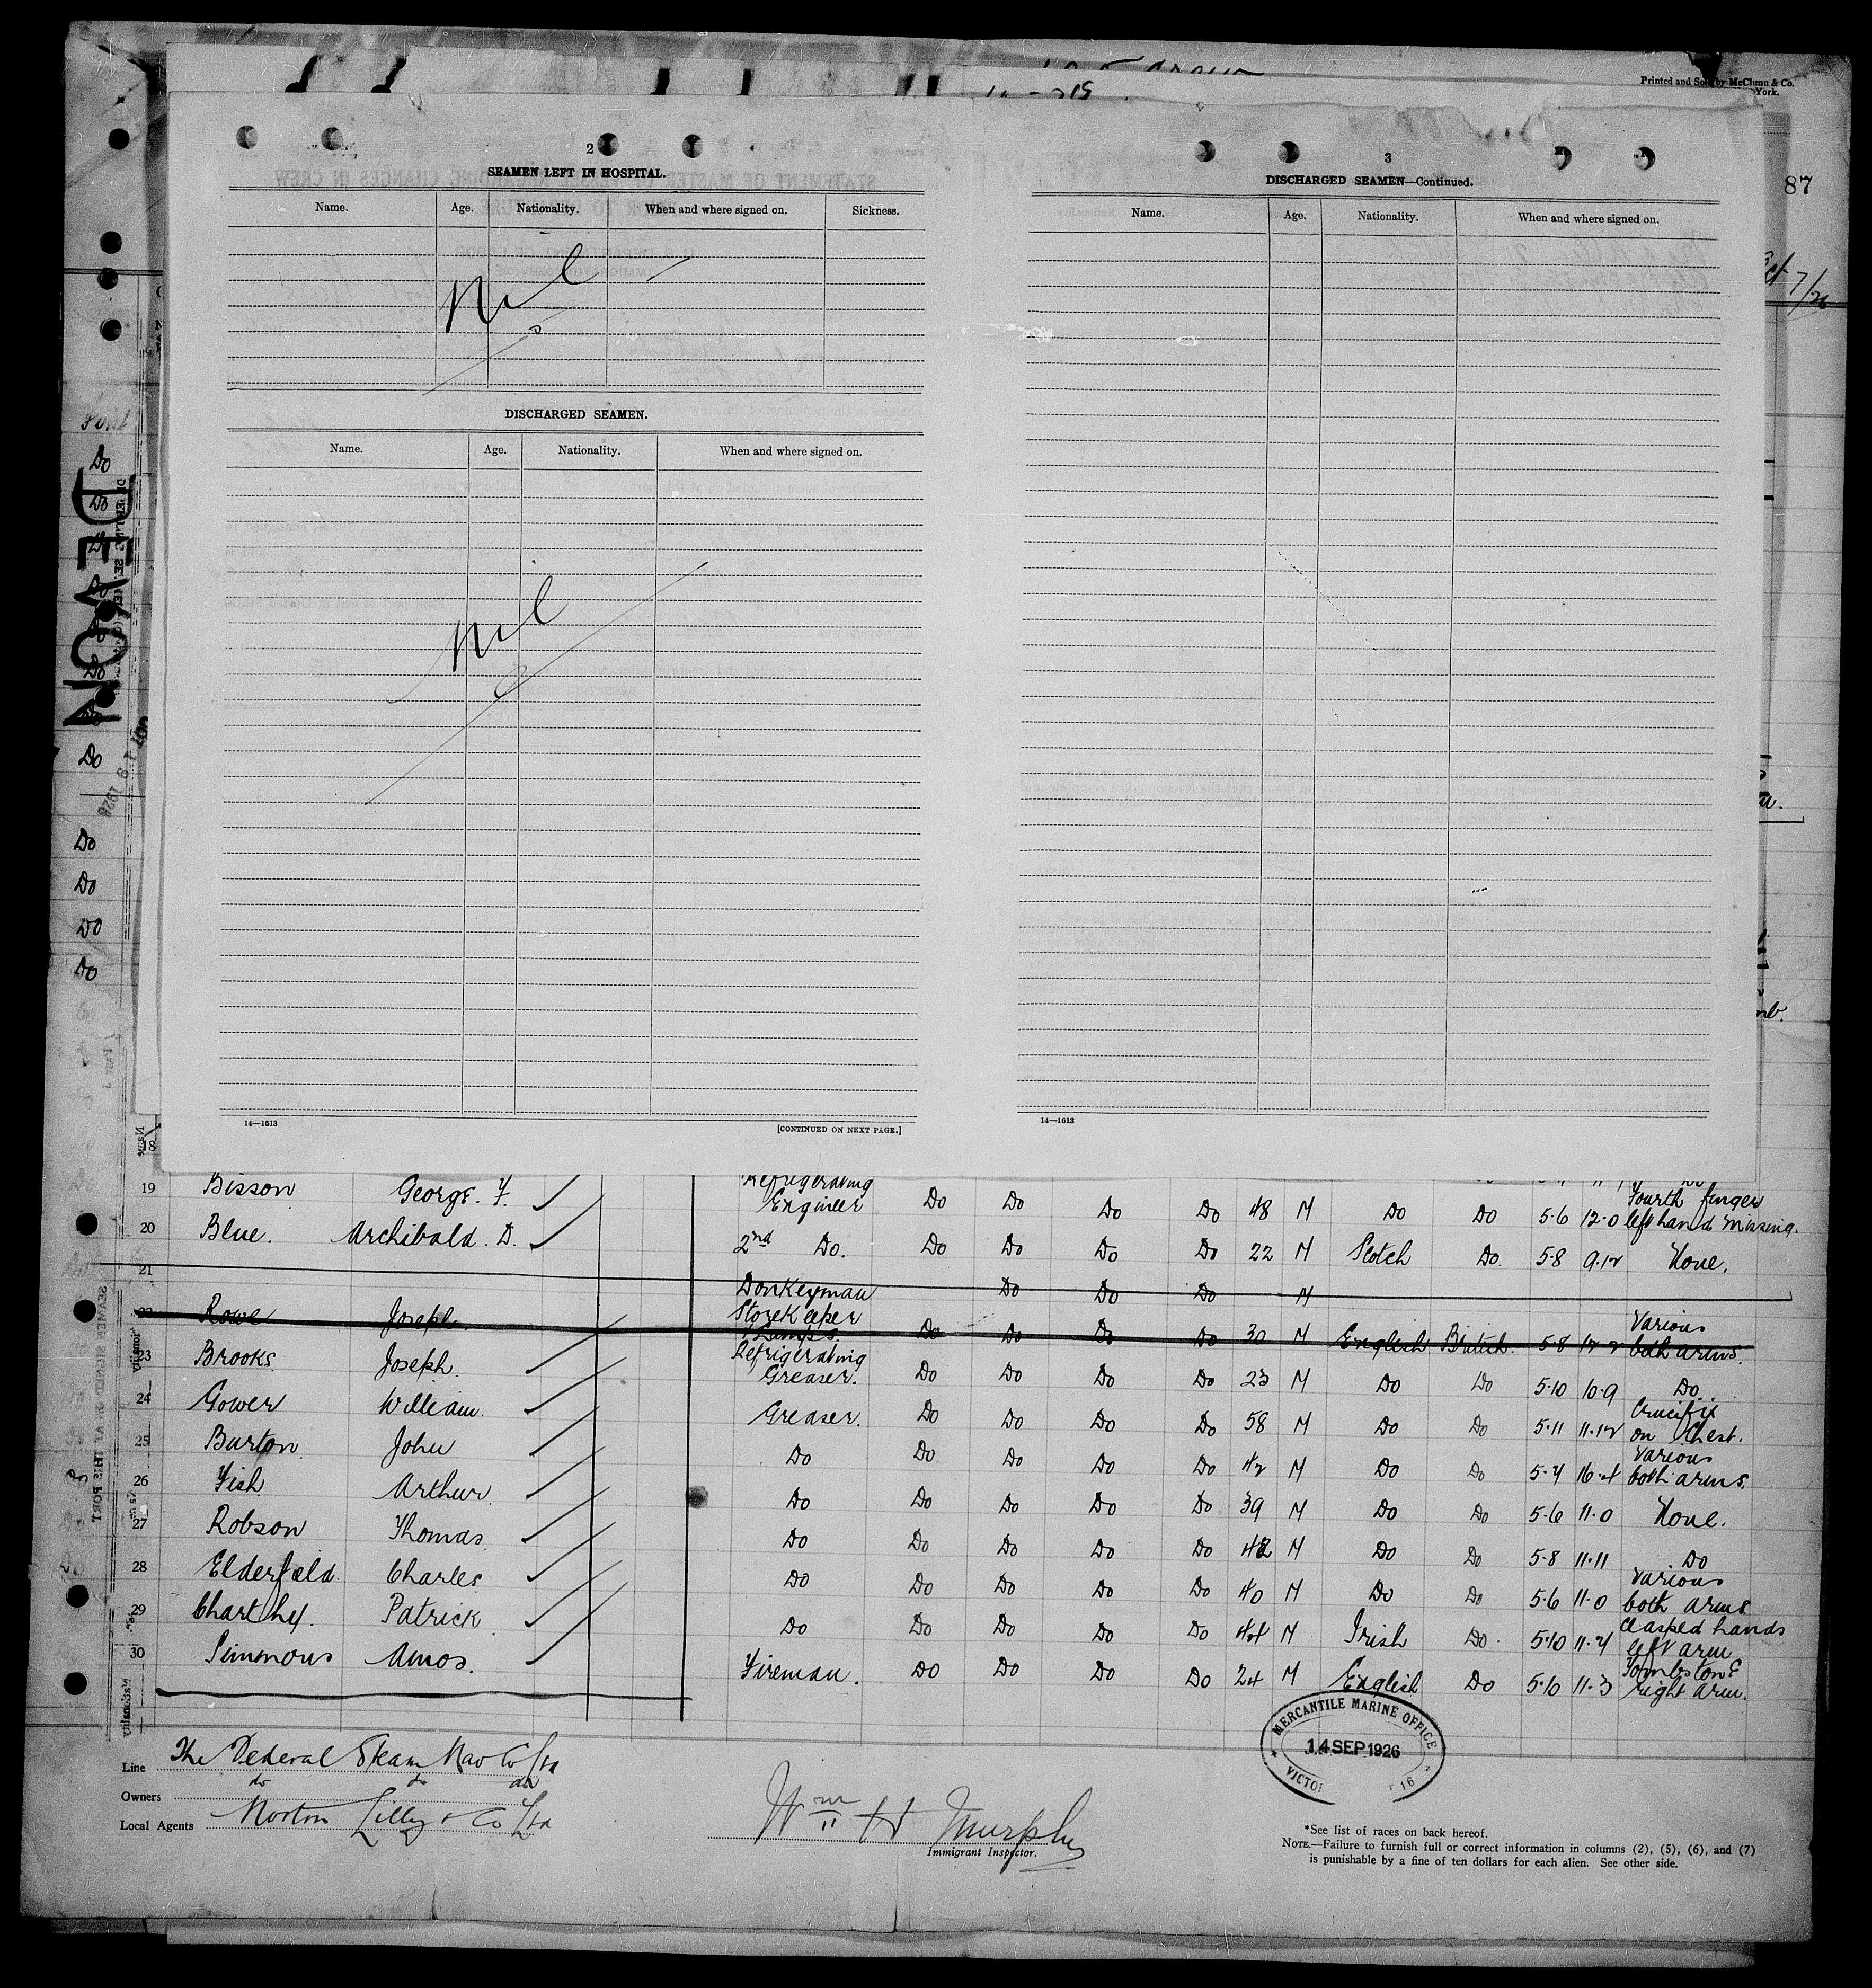 Printed and Sold by McClunn & Co.
York.
87
Oct 7/26
2
SEAMEN LEFT IN HOSPITAL.
Name. Age. Nationality. When and where signed on. Sickness.
Nil
DISCHARGED SEAMEN.
Name. Age. Nationality. When and where signed on.
Nil
14—1613
[CONTINUED ON NEXT PAGE.]
3
DISCHARGED SEAMEN—Continued.
Name. Age. Nationality. When and where signed on.
14—1613
DEVON
Do
Do
Do
Do
Do
Do
Do
Do
18
19 Bisson George. F. Refrigerating Engineer Do Do Do Do 48 M Do Do 5·6 12·0 Fourth finger left hand missing.
20 Blue. Archibald. D. 2nd Do. Do Do Do Do 22 M Scotch Do. 5·8 9.12 None.
21 Donkeyman Do Do Do M
22 Rowe Joseph. Storekeeper & Pumps. Do Do Do Do 30 M English British. 5·8 12·2 Various both arms.
23 Brooks Joseph. Refrigerating Greaser. Do Do Do Do 23 M Do Do 5·10 10·9 Do.
24 Gower William. Greaser. Do Do Do Do 58 M Do Do 5·11 11.12 Crucifix on Chest.
25 Burton John Do Do Do Do Do 42 M Do Do 5·4 16·4 Various both arms.
26 Fish Arthur. Do Do Do Do Do 39 M Do Do 5·6 11·0 None.
27 Robson Thomas. Do Do Do Do Do 42 M Do Do 5·8 11·11 Do
28 Elderfield. Charles. Do Do Do Do Do 40 M Do Do 5·6 11·0 Various both arms.
29 Patrick. Do Do Do Do Do 44 M Irish Do. 5·10 11·4 Clasped hands left arm
30 Simmons Amos. Fireman. Do Do Do Do 24 M English Do 5·10 11·3 Tombstone right arm.
Line The Federal Steam Nav Co Ltd
Owners do do do
Local Agents Norton Lilly & Co Ltd
Wm H Murphy
Immigrant Inspector.
MERCANTILE MARINE OFFICE
14 SEP 1926
VICTOR 16
*See list of races on back hereof.
NOTE.—Failure to furnish full or correct information in columns (2), (5), (6), and (7)
is punishable by a fine of ten dollars for each alien. See other side.